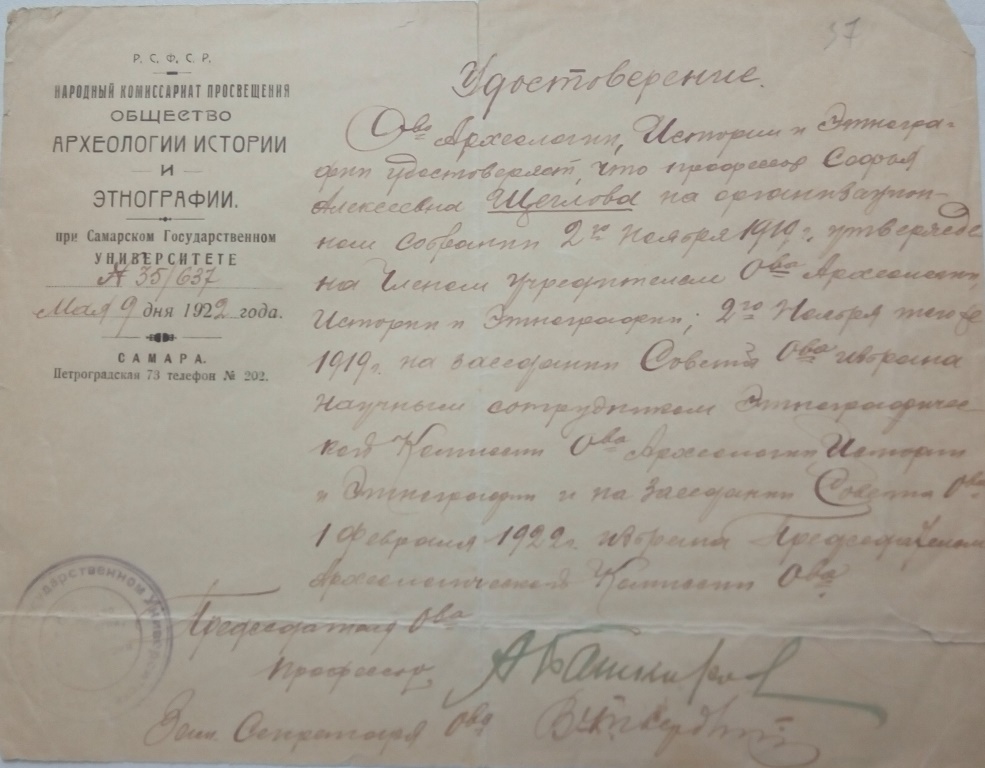 37
Р. С. Ф. С. Р.
НАРОДНЫЙ КОМИССАРИАТ ПРОСВЕЩЕНИЯ
ОБЩЕСТВО
АРХЕОЛОГИИ ИСТОРИИ
И
ЭТНОГРАФИИ.
при Самарском Государственном
УНИВЕРСИТЕТЕ
№ 35/637
Мая 9 дня 1922 года.
САМАРА.
Петроградская 73 телефон № 202.
Удостоверение.
О-во Археологии, Истории и Этногра-
фии удостоверяет, что профессор Софья
Алексеевна Щеглова на организацион-
ном собрании 2го Ноября 1919 г. утвержде-
на Членом учредителем О-ва Археологии,
Истории и Этнографии; 2го Ноября того же
1919 г. на заседании Совета О-ва избрана
научным сотрудником Этнографичес-
кой Комиссии О-ва Археологии, Истории
и Этнографии и на заседании Совета О-ва
1 февраля 1922 г. избрана Председателем
Археологической Комиссии О-ва
Председатель О-ва
Профессор А Башкиров
Зам. Секретаря О-ва
Государственном Универс